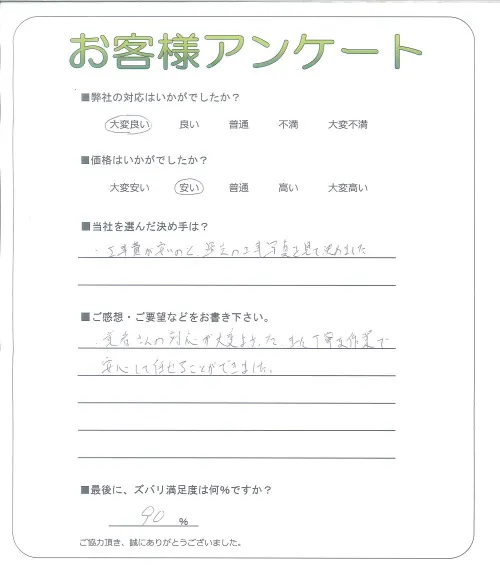 お客様アンケート
■弊社の対応はいかがでしたか？
大変良い 良い 普通 不満 大変不満
■価格はいかがでしたか？
大変安い 安い 普通 高い 大変高い
■当社を選んだ決め手は？
・工事費が安いのと、過去の工事写真を見て決めました
■ご感想・ご要望などをお書き下さい。
業者さんの対応が大変よかった また丁寧な作業で
安心して任せることができました。
■最後に、ズバリ満足度は何%ですか？
90 %
ご協力頂き、誠にありがとうございました。